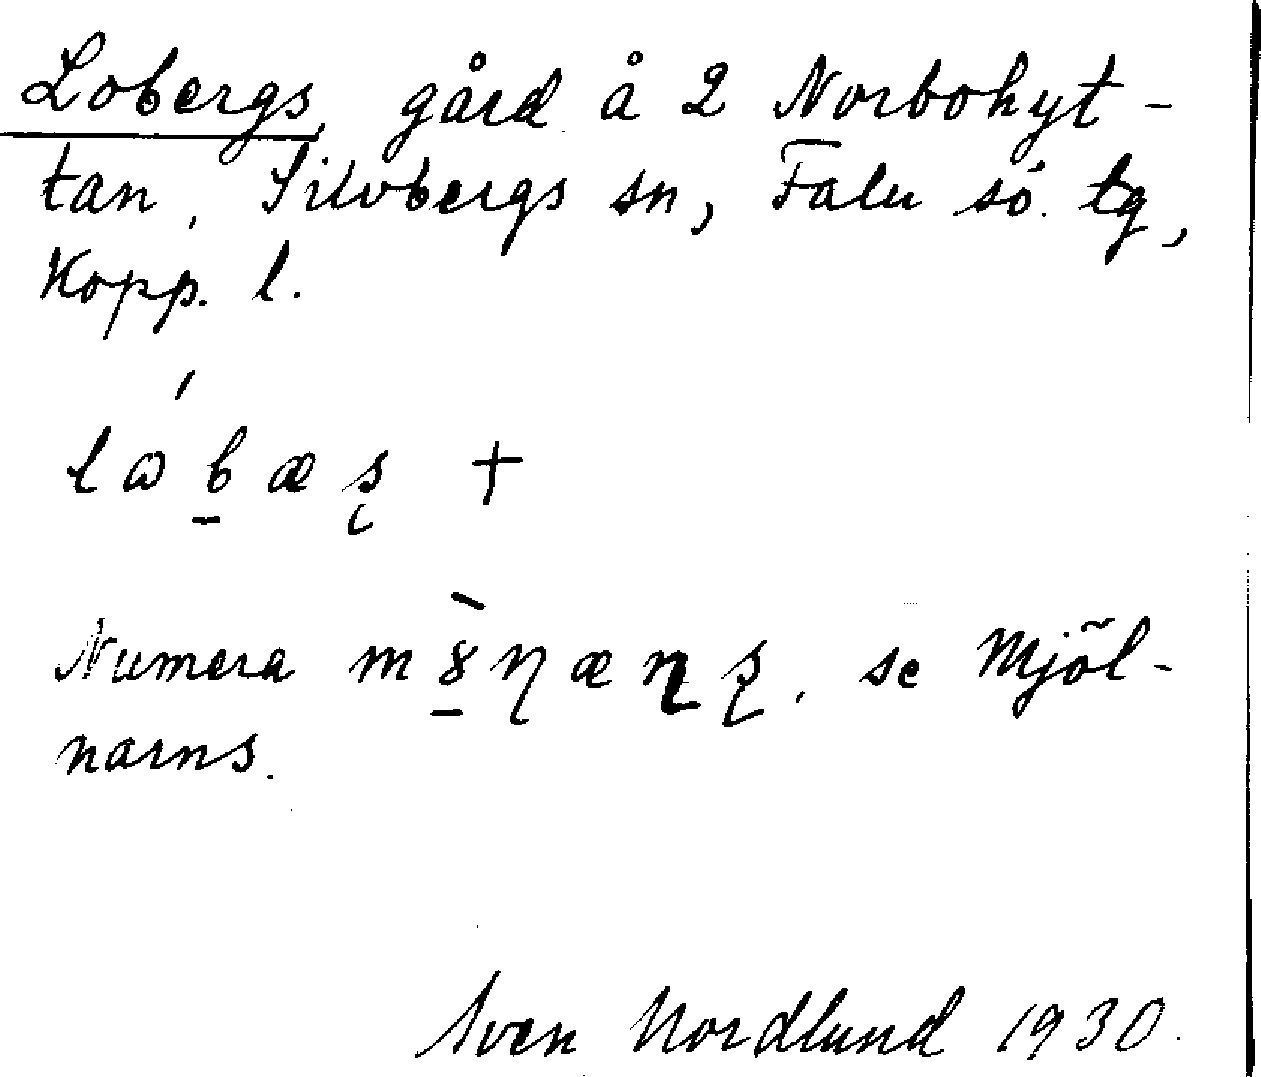 Lobergs, gård å 2 Norbohyt-
tan, Silvbergs sn, Falu sö. tg,
Kopp. l.
lɷ́b̠æʂ †
Numera m8̠̀ɳæɳʂ, se Mjöl-
narns.
Sven Nordlund 1930.